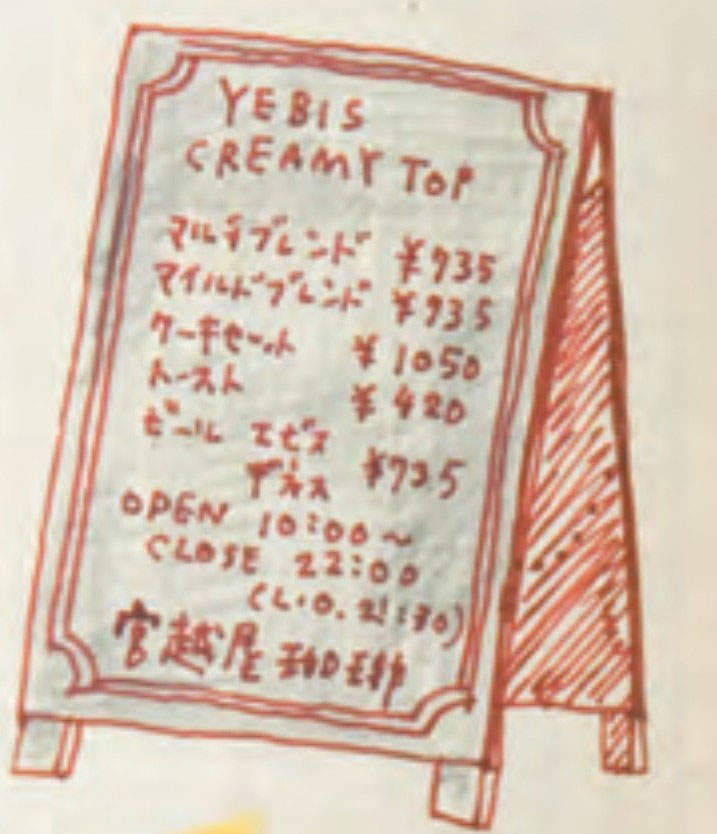 YEBIS
CREAMY TOP
マルチブレンド ¥935
マイルドブレンド ¥935
ケーキセット ¥1050
トースト ¥420
ビール エビス
¥735
OPEN 10:00~
CLOSE 22:00
(L.O. 21:30)
宮越屋珈琲